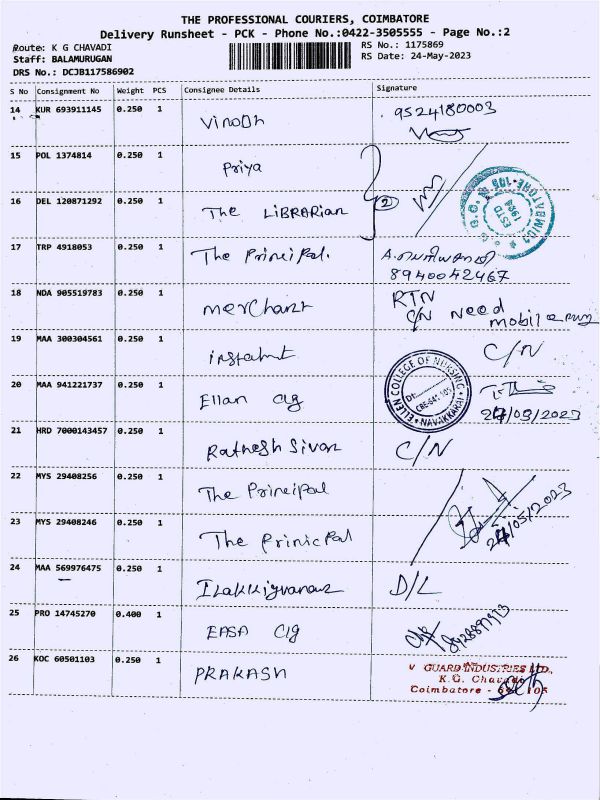 THE PROFESSIONAL COURIERS, COIMBATORE
Delivery Runsheet - PCK - Phone No.:0422-3505555 - Page No.:2
Route: K G CHAVADI RS No.: 1175869
Staff: BALAMURUGAN RS Date: 24-May-2023
DRS No.: DCJB117586902
S No Consignment No Weight PCS Consignee Details Signature
14 KUR 693911145 0.250 1 Vinoth 9524180003
15 POL 1374814 0.250 1 Priya
16 DEL 120871292 0.250 1 The LIBRARIan 2
17 TRP 4918053 0.250 1 The Principal.
8940042467
18 NDA 905519783 0.250 1 merchant RTN
C/N Need
mobile
19 MAA 300304561 0.250 1 C/N
20 MAA 941221737 0.250 1 Ellan clg
ELLEN COLLEGE OF NURSING
CBE-641 105
NAVAKKARAI
24/05/2023
21 HRD 7000143457 0.250 1 Rathesh Sivan C/N
22 MYS 29408256 0.250 1 The Principal
23 MYS 29408246 0.250 1 The Prinicpal 24/05/2023
24 MAA 569976475 0.250 1 D/L
25 PRO 14745270 0.400 1 EASA clg
26 KOC 60501103 0.250 1 PRAKASH
V GUARD INDUSTRIES LTD.,
K.G. Chavadi
Coimbatore - 641 105
ESTD
1984